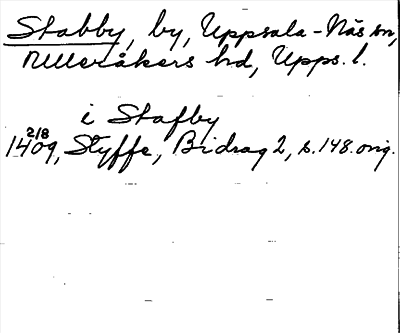 Stabby, by, Uppsala-Näs sn,
Ulleråkers hd, Upps. l.
i Stafby
2/8
1409, Styffe, Bidrag 2, s. 148. orig.